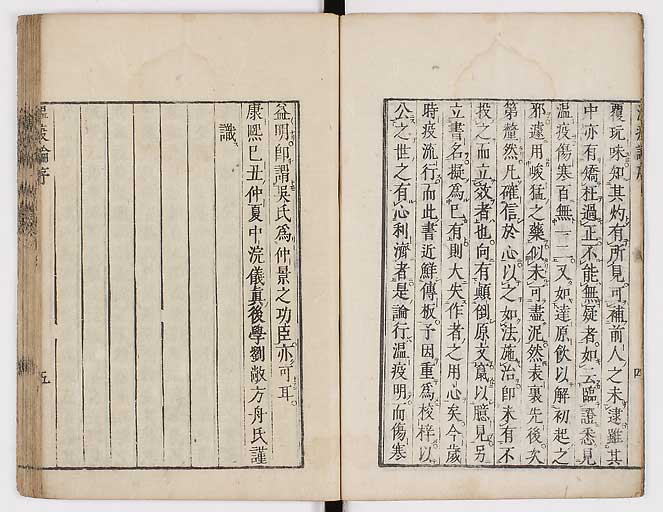 覆玩味知其灼有所見可補前人之未逮雖其
中亦有矯枉過正不能無疑者如云臨證悉見
温疫傷寒百無一二又如達原飲以解初起之
邪遽用峻猛之藥似未可盡泥然表裏先後次
第釐然凡確信於心以之如法施治卽未有不
投之而立效者也向有顛倒原文竄以臆見另
立書名擬爲已有則大失作者之用心矣今歲
時疫流行而此書近鮮傳板予因重爲梭梓以
公之世之有心利濟者是論行温疫明而傷寒
四
益明卽謂吳氏爲仲景之功臣亦可耳
康熙己丑仲夏中浣儀眞後學劉敞方舟氏謹
識
温疫論序
五